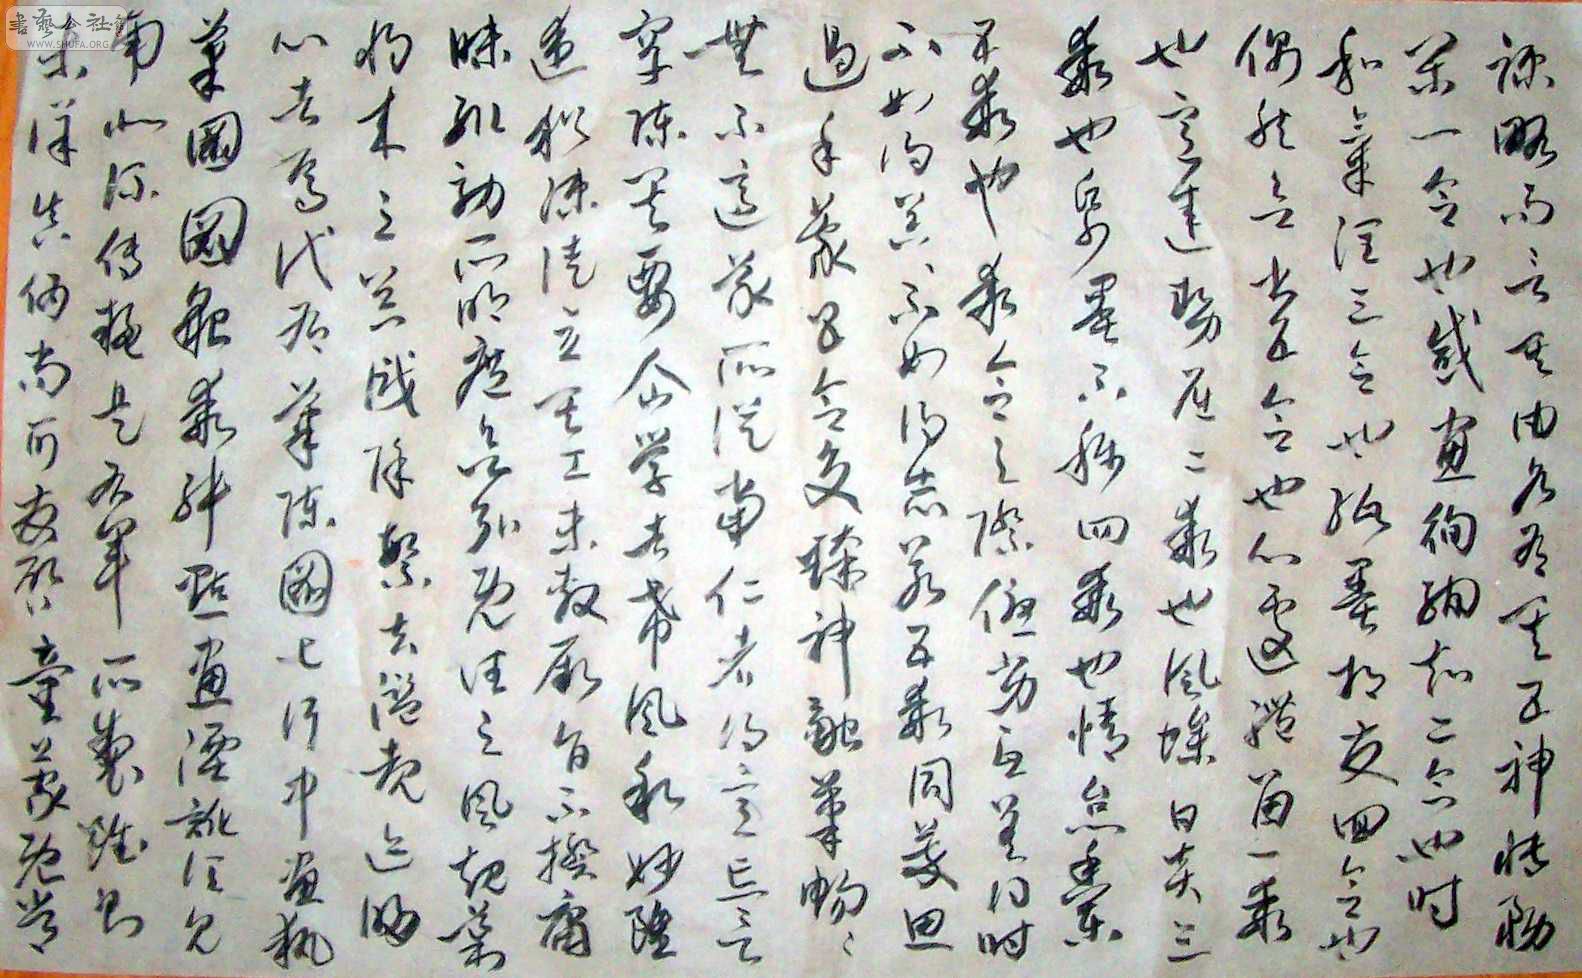 疎略而言其由各有其五神怡務
閑一合也感惠徇知二合也時
和氣潤三合也紙墨相發四合也
偶然欲書五合也心遽體留一乖
也意違勢屈二乖也風燥日炎三
乖也紙墨不稱四乖也情怠手闌
五乖也乖合之際優劣互差得時
不如得器不如得志若五乖同萃思
遏手蒙五合交臻神融筆暢〻
無不適蒙所從當仁者得意忘言
罕陳其要企學者希風敘妙雖
述猶疎徒立其工未敷厥旨不揆庸
昧輒効所明庶欲弘既往之風規導
將來之器識除繁去濫覩迹明
心者焉代有筆陣圖七行中畫執
筆圖圖貌乖舛點畫湮訛頃見
南北流傳疑是右軍所製雖則
未詳真偽尚可發啓童蒙既常
書藝公社
WWW.SHUFA.ORG